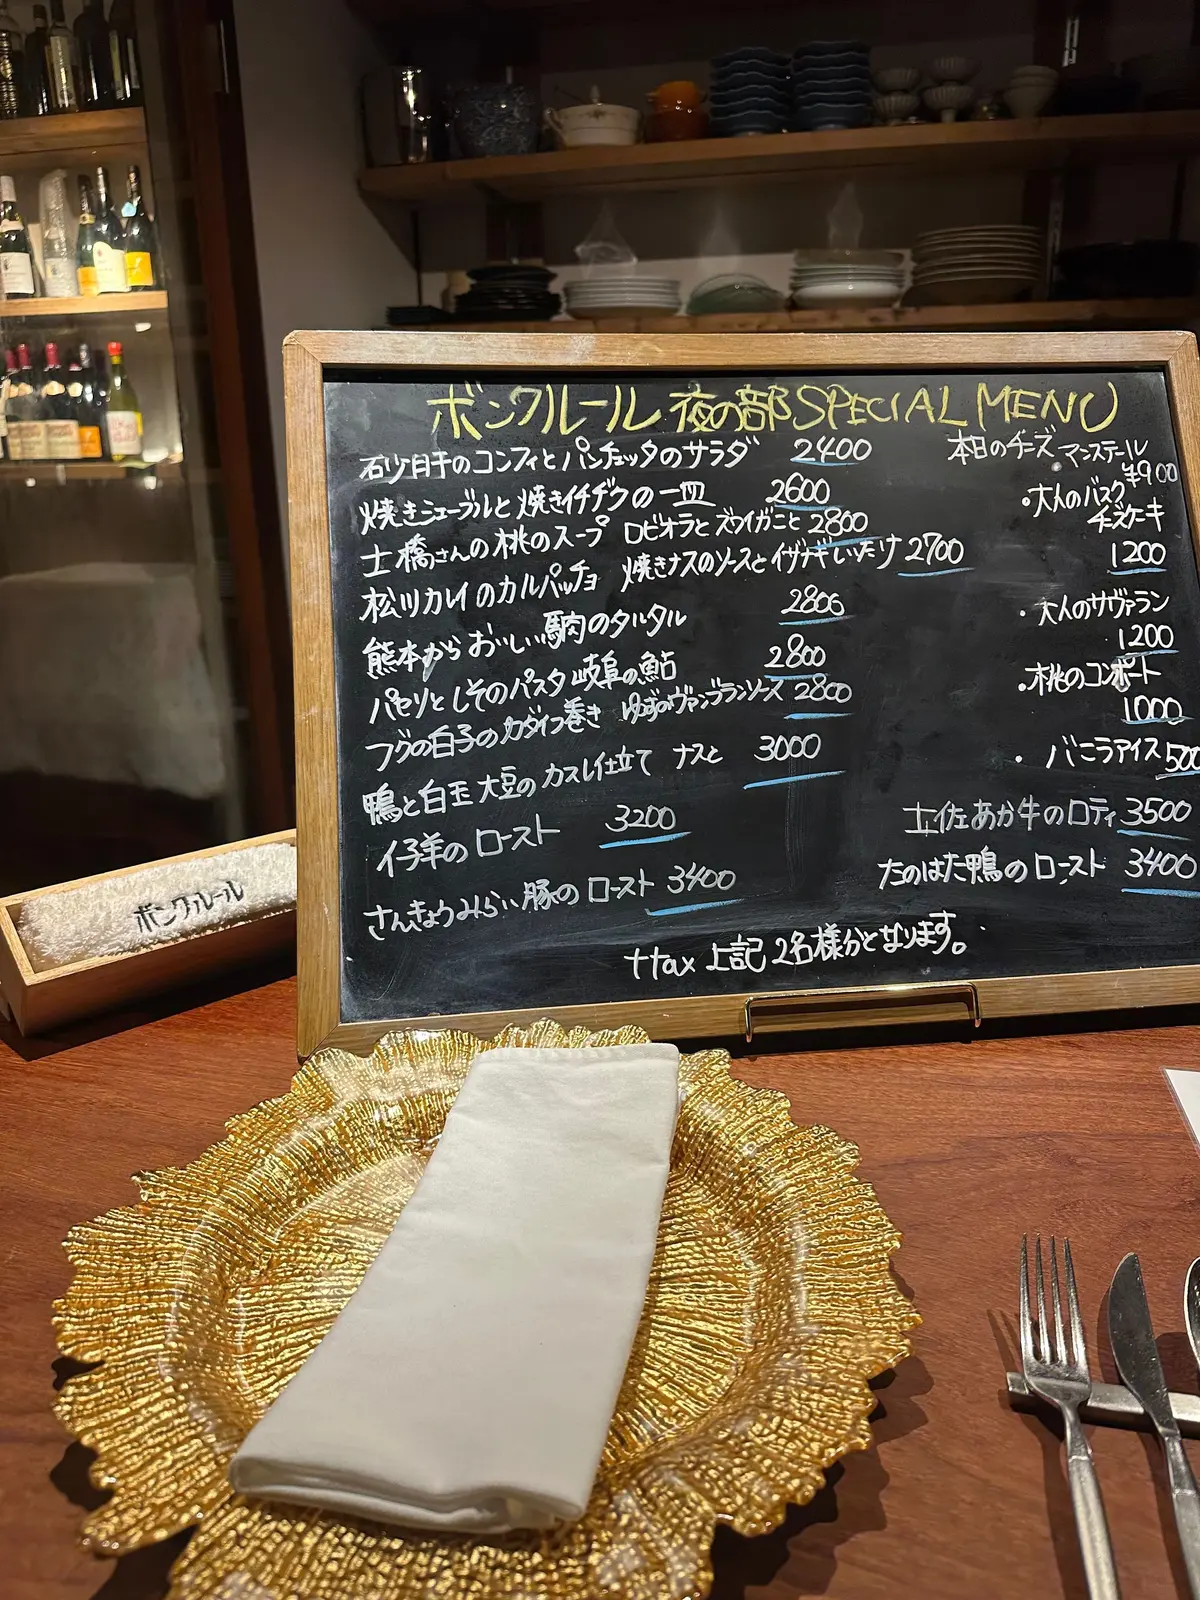 ボンクルール 夜の部 SPECIAL MENU
石少肝のコンフィとパンチェッタのサラダ 2400
焼きシェーブルと焼きイチヂクの一皿 2600
土橋さんの桃のスープ ロビオラとズワイガニと 2800
松川カレイのカルパッチョ 焼きナスのソースとイザナギいたけ 2700
熊本からおいしい馬肉のタルタル 2800
パセリとしそのパスタ 岐阜の鮎 2800
フグの白子のカダイフ巻き ゆずのヴァンブランソース 2800
鴨と白玉大豆のカスレ仕立て ナスと 3000
仔羊のロースト 3200
さんきょうみらい豚のロースト 3400
本日のチーズ マンステール
¥900
・大人のバスク
チーズケーキ
1200
・大人のサヴァラン
1200
・桃のコンポート
1000
・バニラアイス 500
土佐あか牛のロティ 3500
たのはた鴨のロースト 3400
+tax 上記2名様分となります。
ボンクルール